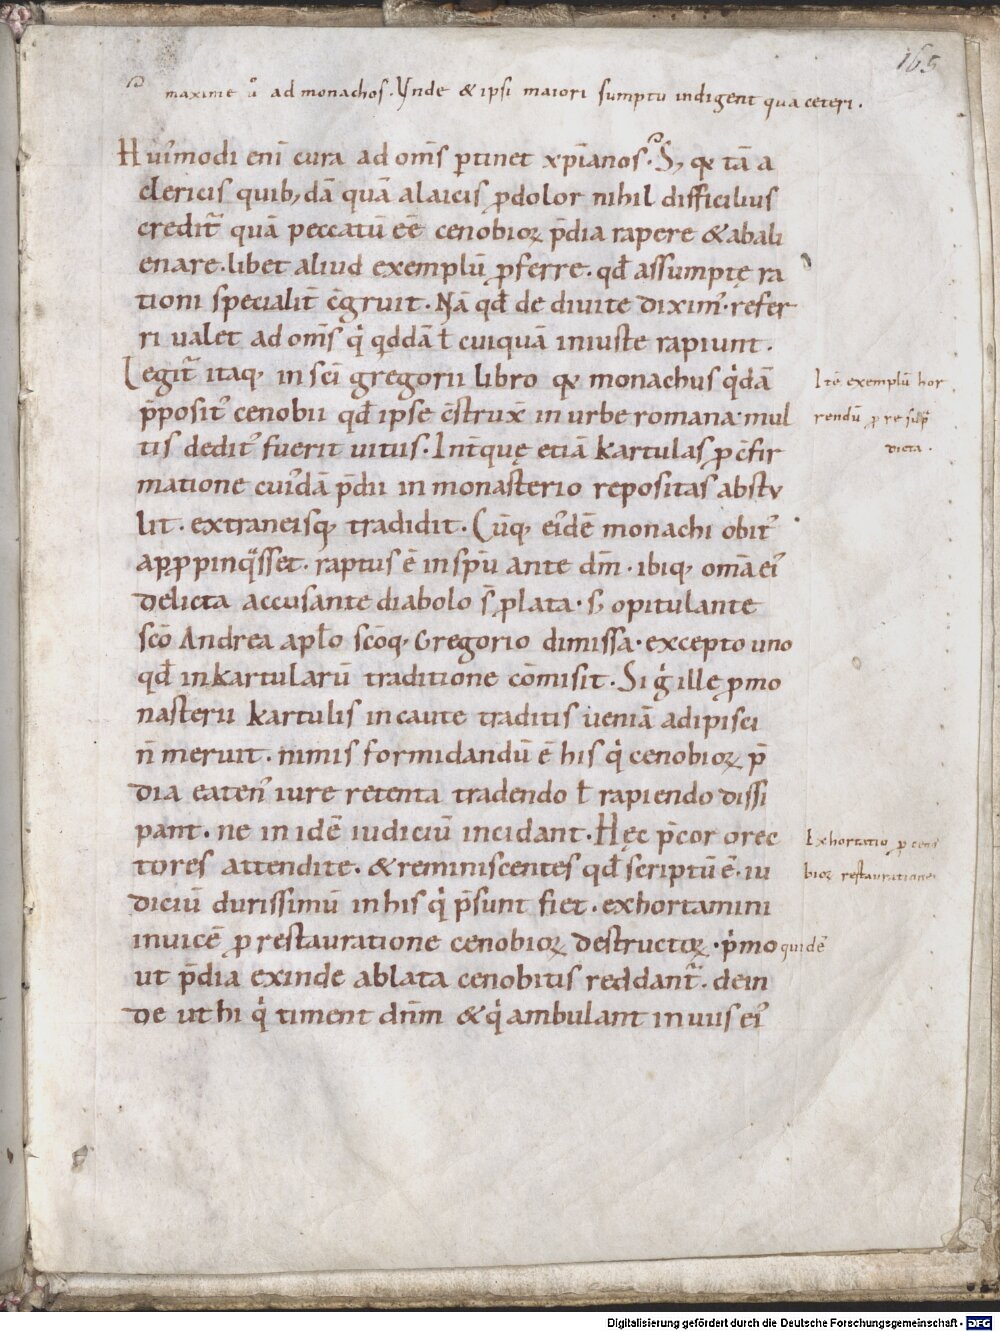 165
maxime u̾ ad monachos. Vnde & ipsi maiori sumptu indigent qua ceteri.
Hui᾽modi eni̅ cura ad om̅s p̱tinet xp̅ianos. S; qa ta̅ a
clericis quib;da̅ qua̅ a laicis ꝓdolor nihil difficilius
credit᷑ qua̅ peccatu̅ ee̅ cenobioꝝ p̅dia rapere & abali
enare. libet aliud exemplu̅ ꝓferre. qd̅ assumptę ra
tioni specialit̅ c̅gruit. Na̅ qd̅ de diuite dixim᾽. refer
ri ualet ad om̅s qi qd̅da̅ ł cuiqua̅ iniuste rapiunt.
Legit᷑ itaq; in sc̅i gregorii libro qa monachus qida̅
p̅posit᾽ cenobii qd̅ ipse c̅strux̅ in urbe romana. mul
tis dedit᾽ fuerit uitiis. Int̅que etia̅ kartulas ꝓ c̅fir
matione cui᾽da̅ p̅dii in monasterio repositas abstu
lit. extraneisq; tradidit. Cu̅q; ei᾽de̅ monachi obit᾽
apꝓpinqasset. raptus e̅ in sp̅u ante dm̅. ibiq; om̅a ei᾽
delicta accusante diabolo s̅ ꝓlata. s; opitulante
sc̅o Andrea aplo̅ sc̅oq; Gregorio dimissa. excepto uno
qd̅ in kartularu̅ traditione co̅misit. Si gi ille ꝓ mo
nasterii kartulis incaute traditis uenia̅ adipisci
n̅ meruit. nimis formidandu̅ e̅ his qi cenobioꝝ p̅
dia eaten᾽ iure retenta tradendo ł rapiendo dissi
pant. ne in ide̅ iudiciu̅ incidant. Hęc p̅cor o rec
tores attendite. & reminiscentes qd̅ scriptu̅ e̅. iu
diciu̅ durissimu̅ in his qi p̅sunt fiet. exhortamini
inuice̅ ꝓ restauratione cenobioꝝ destructoꝝ. pimo quide̅
ut p̅dia exinde ablata cenobiis reddant᷑. dein
de ut hi qi timent dn̅m & qi ambulant in uiis ei᾽
Ite̅ exemplu̅ hor
rendu̅ ꝓ re
dicta.
Exhortatio ꝓ ceno
bioꝝ restauratione
Digitalisierung gefördert durch die Deutsche Forschungsgemeinschaft - DFG